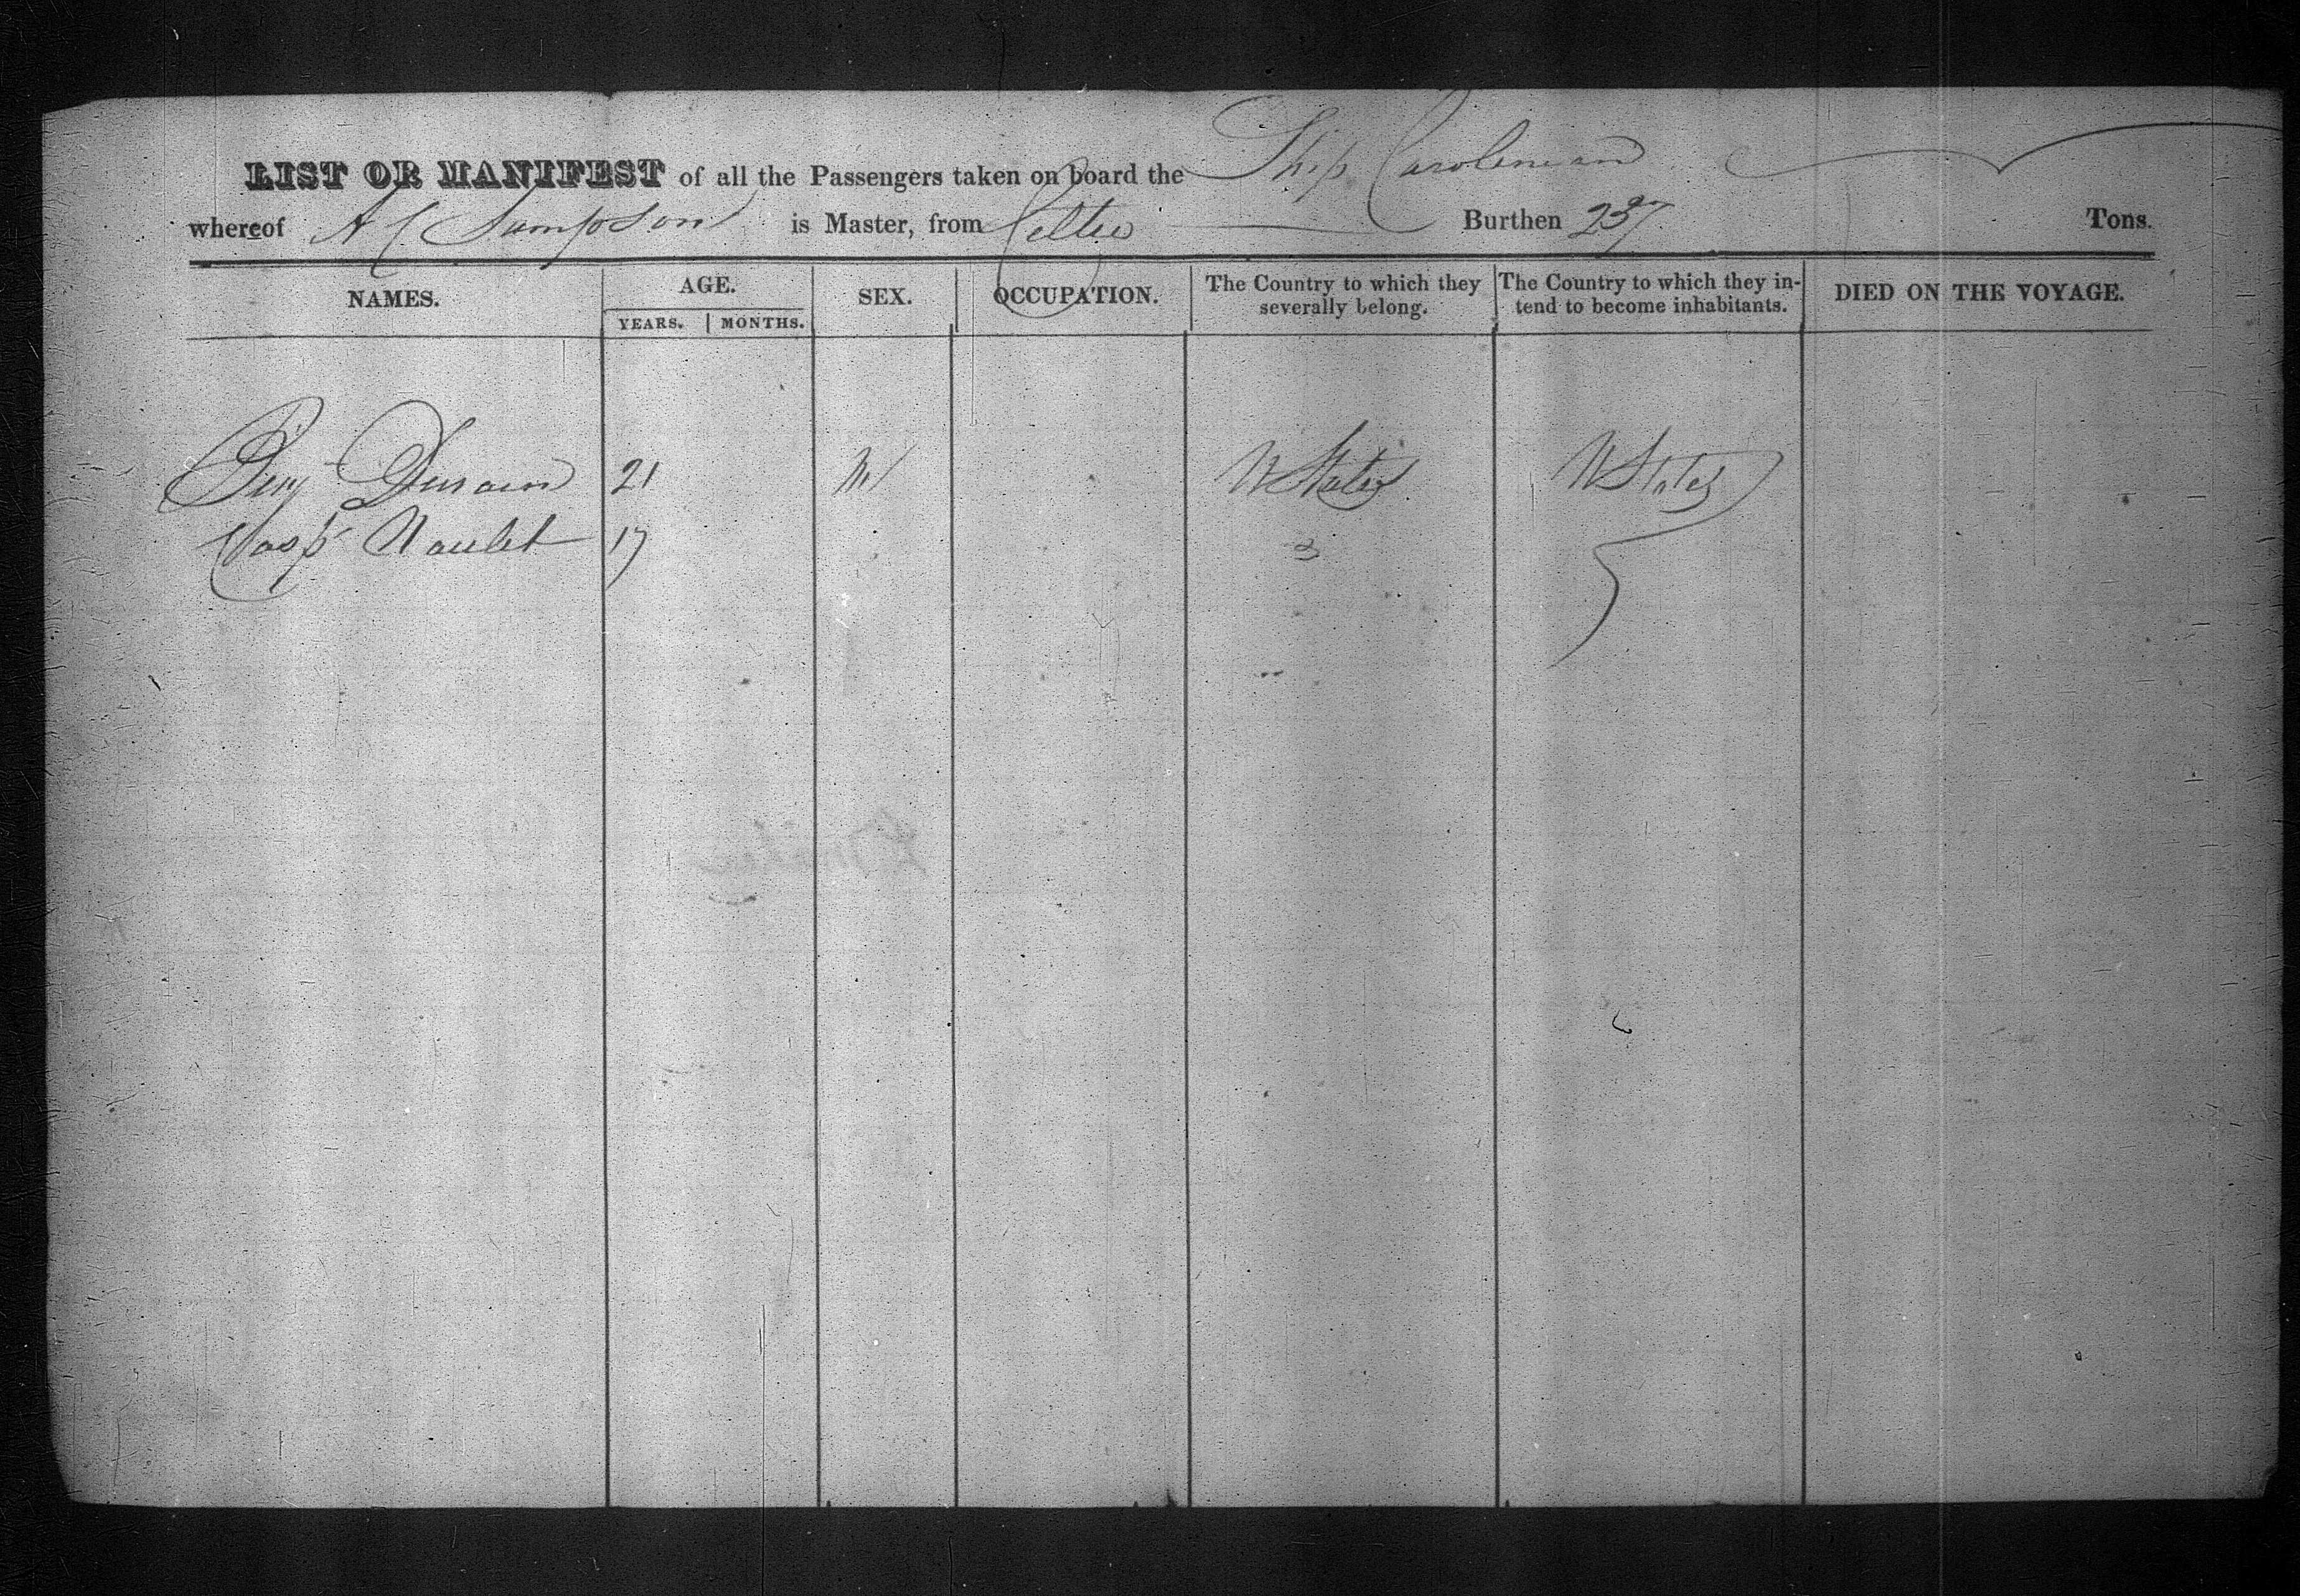 LIST OR MANIFEST of all the Passengers taken on board the Ship Carolinian
whereof A C Sampson is Master, from Cette Burthen 237 Tons.
NAMES. AGE. SEX. OCCUPATION. The Country to which they severally belong. The Country to which they intend to become inhabitants. DIED ON THE VOYAGE.
YEARS. MONTHS.
Benj 21 M U States U States
17